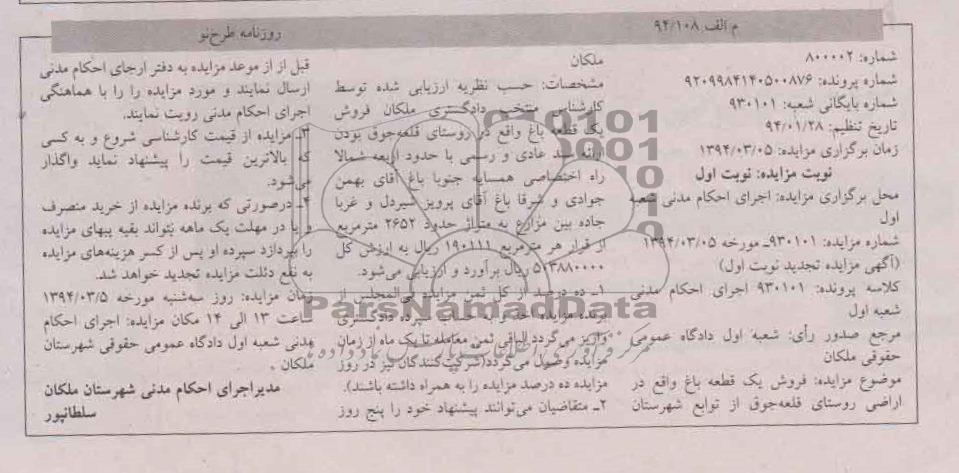 م الف ۹۴/۱۰۸
روزنامه طرح‌نو
شماره: ۸۰۰۰۰۲
شماره پرونده: ۹۲۰۹۹۸۴۱۴۰۵۰۰۸۷۶
شماره بایگانی شعبه: ۹۳۰۱۰۱
تاریخ تنظیم: ۹۴/۰۱/۲۸
زمان برگزاری مزایده: ۱۳۹۴/۰۳/۰۵
نوبت مزایده: نوبت اول
محل برگزاری مزایده: اجرای احکام مدنی شعبه
اول
شماره مزایده: ۹۳۰۱۰۱ـ مورخه ۱۳۹۴/۰۳/۰۵
(آگهی مزایده تجدید نوبت اول)
کلاسه پرونده: ۹۳۰۱۰۱ اجرای احکام مدنی
شعبه اول
مرجع صدور رأی: شعبه اول دادگاه عمومی
حقوقی ملکان
موضوع مزایده: فروش یک قطعه باغ واقع در
اراضی روستای قلعه‌جوق از توابع شهرستان
ملکان
مشخصات: حسب نظریه ارزیابی شده توسط
کارشناس منتخب دادگستری ملکان فروش
یک قطعه باغ واقع در روستای قلعه‌جوق بودن
ارائه سند عادی و رسمی با حدود اربعه شمالا
راه اختصاصی همسایه جنوبا باغ آقای بهمن
جوادی و شرقا باغ آقای پرویز شیردل و غربا
جاده بین مزارع به متراژ حدود ۲۶۵۲ مترمربع
از قرار هر مترمربع ۱۹۰۱۱۱ ریال به ارزش کل
۵۰۳۸۸۰۰۰۰ ریال برآورد و ارزیابی می‌شود.
۱ـ ده درصد از کل ثمن مزایده فی‌المجلس از
برنده مزایده اخذ و به حساب سپرده دادگستری
واریز می‌گردد الباقی ثمن معامله تا یک ماه از زمان
مزایده وصول می‌گردد(شرکت‌کنندگان نیز در روز
مزایده ده درصد مزایده را به همراه داشته باشند).
۲ـ متقاضیان می‌توانند پیشنهاد خود را پنج روز
قبل از از موعد مزایده به دفتر ارجای احکام مدنی
ارسال نمایند و مورد مزایده را را با هماهنگی
اجرای احکام مدنی رویت نمایند.
۳ـ مزایده از قیمت کارشناسی شروع و به کسی
که بالاترین قیمت را پیشنهاد نماید واگذار
می‌شود.
۴ـ درصورتی که برنده مزایده از خرید منصرف
و یا در مهلت یک ماهه نتواند بقیه بهای مزایده
را بپردازد سپرده او پس از کسر هزینه‌های مزایده
به نفع دئلت مزایده تجدید خواهد شد.
زمان مزایده: روز سه‌شنبه مورخه ۱۳۹۴/۰۳/۵
ساعت ۱۳ الی ۱۴ مکان مزایده: اجرای احکام
مدنی شعبه اول دادگاه عمومی حقوقی شهرستان
ملکان .
مدیراجرای احکام مدنی شهرستان ملکان
سلطانپور
ParsNamadData